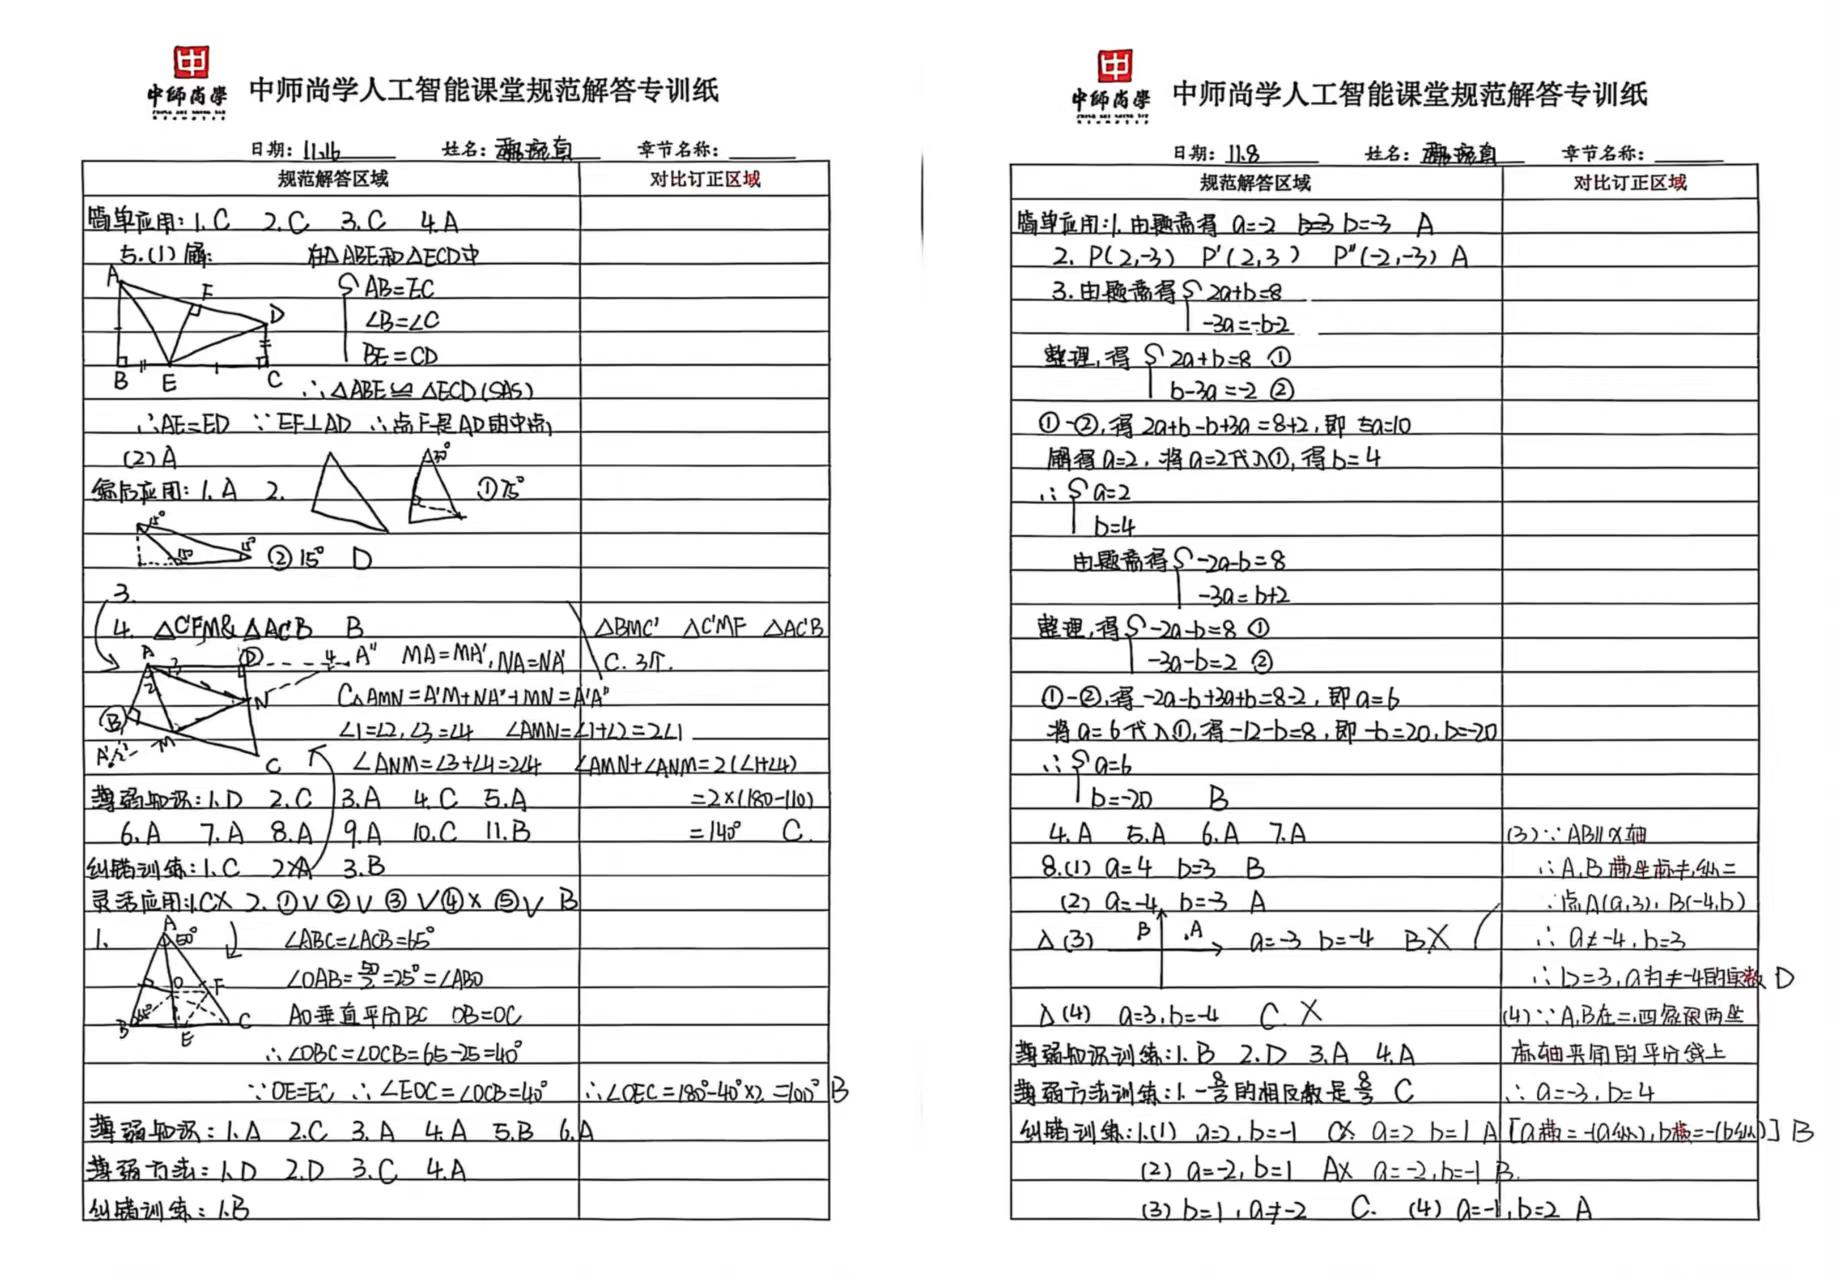 中师尚学
中师尚学人工智能课堂规范解答专训纸
日期: 11.16 姓名: 章节名称:
规范解答区域 对比订正区域
简单应用: 1. C 2. C 3. C 4. A
5. (1) 解: 在△ABE和△ECD中
A F D B E C
{ AB=EC
∠B=∠C
BE=CD
∴△ABE≌△ECD(SAS)
∴AE=ED ∵EF⊥AD ∴点F是AD的中点
(2) A
综合应用: 1. A 2. 30° ①75°
15° 15° 15° ②15° D
3.
4. △C'FM&△AC'B B △BMC' △C'MF △AC'B
C. 3个.
A D A'' MA=MA', NA=NA'
C△AMN=A'M+NA''+MN=A'A''
∠1=∠2, ∠3=∠4 ∠AMN=∠1+∠2=2∠1
∠ANM=∠3+∠4=2∠4 ∠AMN+∠ANM=2(∠1+∠4)
=2×(180-110)
=140° C.
薄弱知识: 1. D 2. C 3. A 4. C 5. A
6. A 7. A 8. A 9. A 10. C 11. B
纠错训练: 1. C 2×A 3. B
灵活应用: 1. C× 2. ①√ ②√ ③√ ④× ⑤√ B
1. A 50° O F B E C
∠ABC=∠ACB=65°
∠OAB=50/2=25°=∠ABO
AO垂直平分BC OB=OC
∴∠OBC=∠OCB=65-25=40°
∵OE=EC ∴∠EOC=∠OCB=40° ∴∠OEC=180°-40°×2=100° B
薄弱知识: 1. A 2. C 3. A 4. A 5. B 6. A
薄弱方法: 1. D 2. D 3. C 4. A
纠错训练: 1. B
中师尚学
中师尚学人工智能课堂规范解答专训纸
日期: 11.8 姓名: 章节名称:
规范解答区域 对比订正区域
简单应用: 1. 由题意得 a=-2 b=-3 A
2. P(2,-3) P'(2,3) P''(-2,-3) A
3. 由题意得 { 2a+b=8
-3a=-b-2
整理,得 { 2a+b=8 ①
b-3a=-2 ②
①-②,得 2a+b-b+3a=8+2,即 5a=10
解得a=2, 将a=2代入①,得b=4
∴ { a=2
b=4
由题意得 { -2a-b=8
-3a=b+2
整理,得 { -2a-b=8 ①
-3a-b=2 ②
①-②,得 -2a-b+3a+b=8-2,即a=6
将a=6代入①,得-12-b=8,即-b=20,b=-20
∴ { a=6
b=-20 B
4. A 5. A 6. A 7. A
8. (1) a=4 b=3 B
(2) a=-4 b=-3 A
△(3) B .A a=-3 b=-4 B.×
△(4) a=3, b=-4 C. ×
(3)∵AB∥X轴
∵点A(a,3), B(-4,b)
∴a≠-4, b=3
∴b=3, a为≠-4的实数 D
(4)∵A,B在二,四象限两坐
标轴夹角的平分线上
∴a=-3, b=4
薄弱知识训练: 1. B 2. D 3. A 4. A
薄弱方法训练: 1. 的相反数是 C
纠错训练: 1. (1) a=2, b=-1 C×. a=2 b=1 A [a横=-(a纵), b横=-(b纵)] B
(2) a=-2, b=1 A× a=-2, b=-1 B.
(3) b=1, a≠-2 C. (4) a=-1, b=2 A